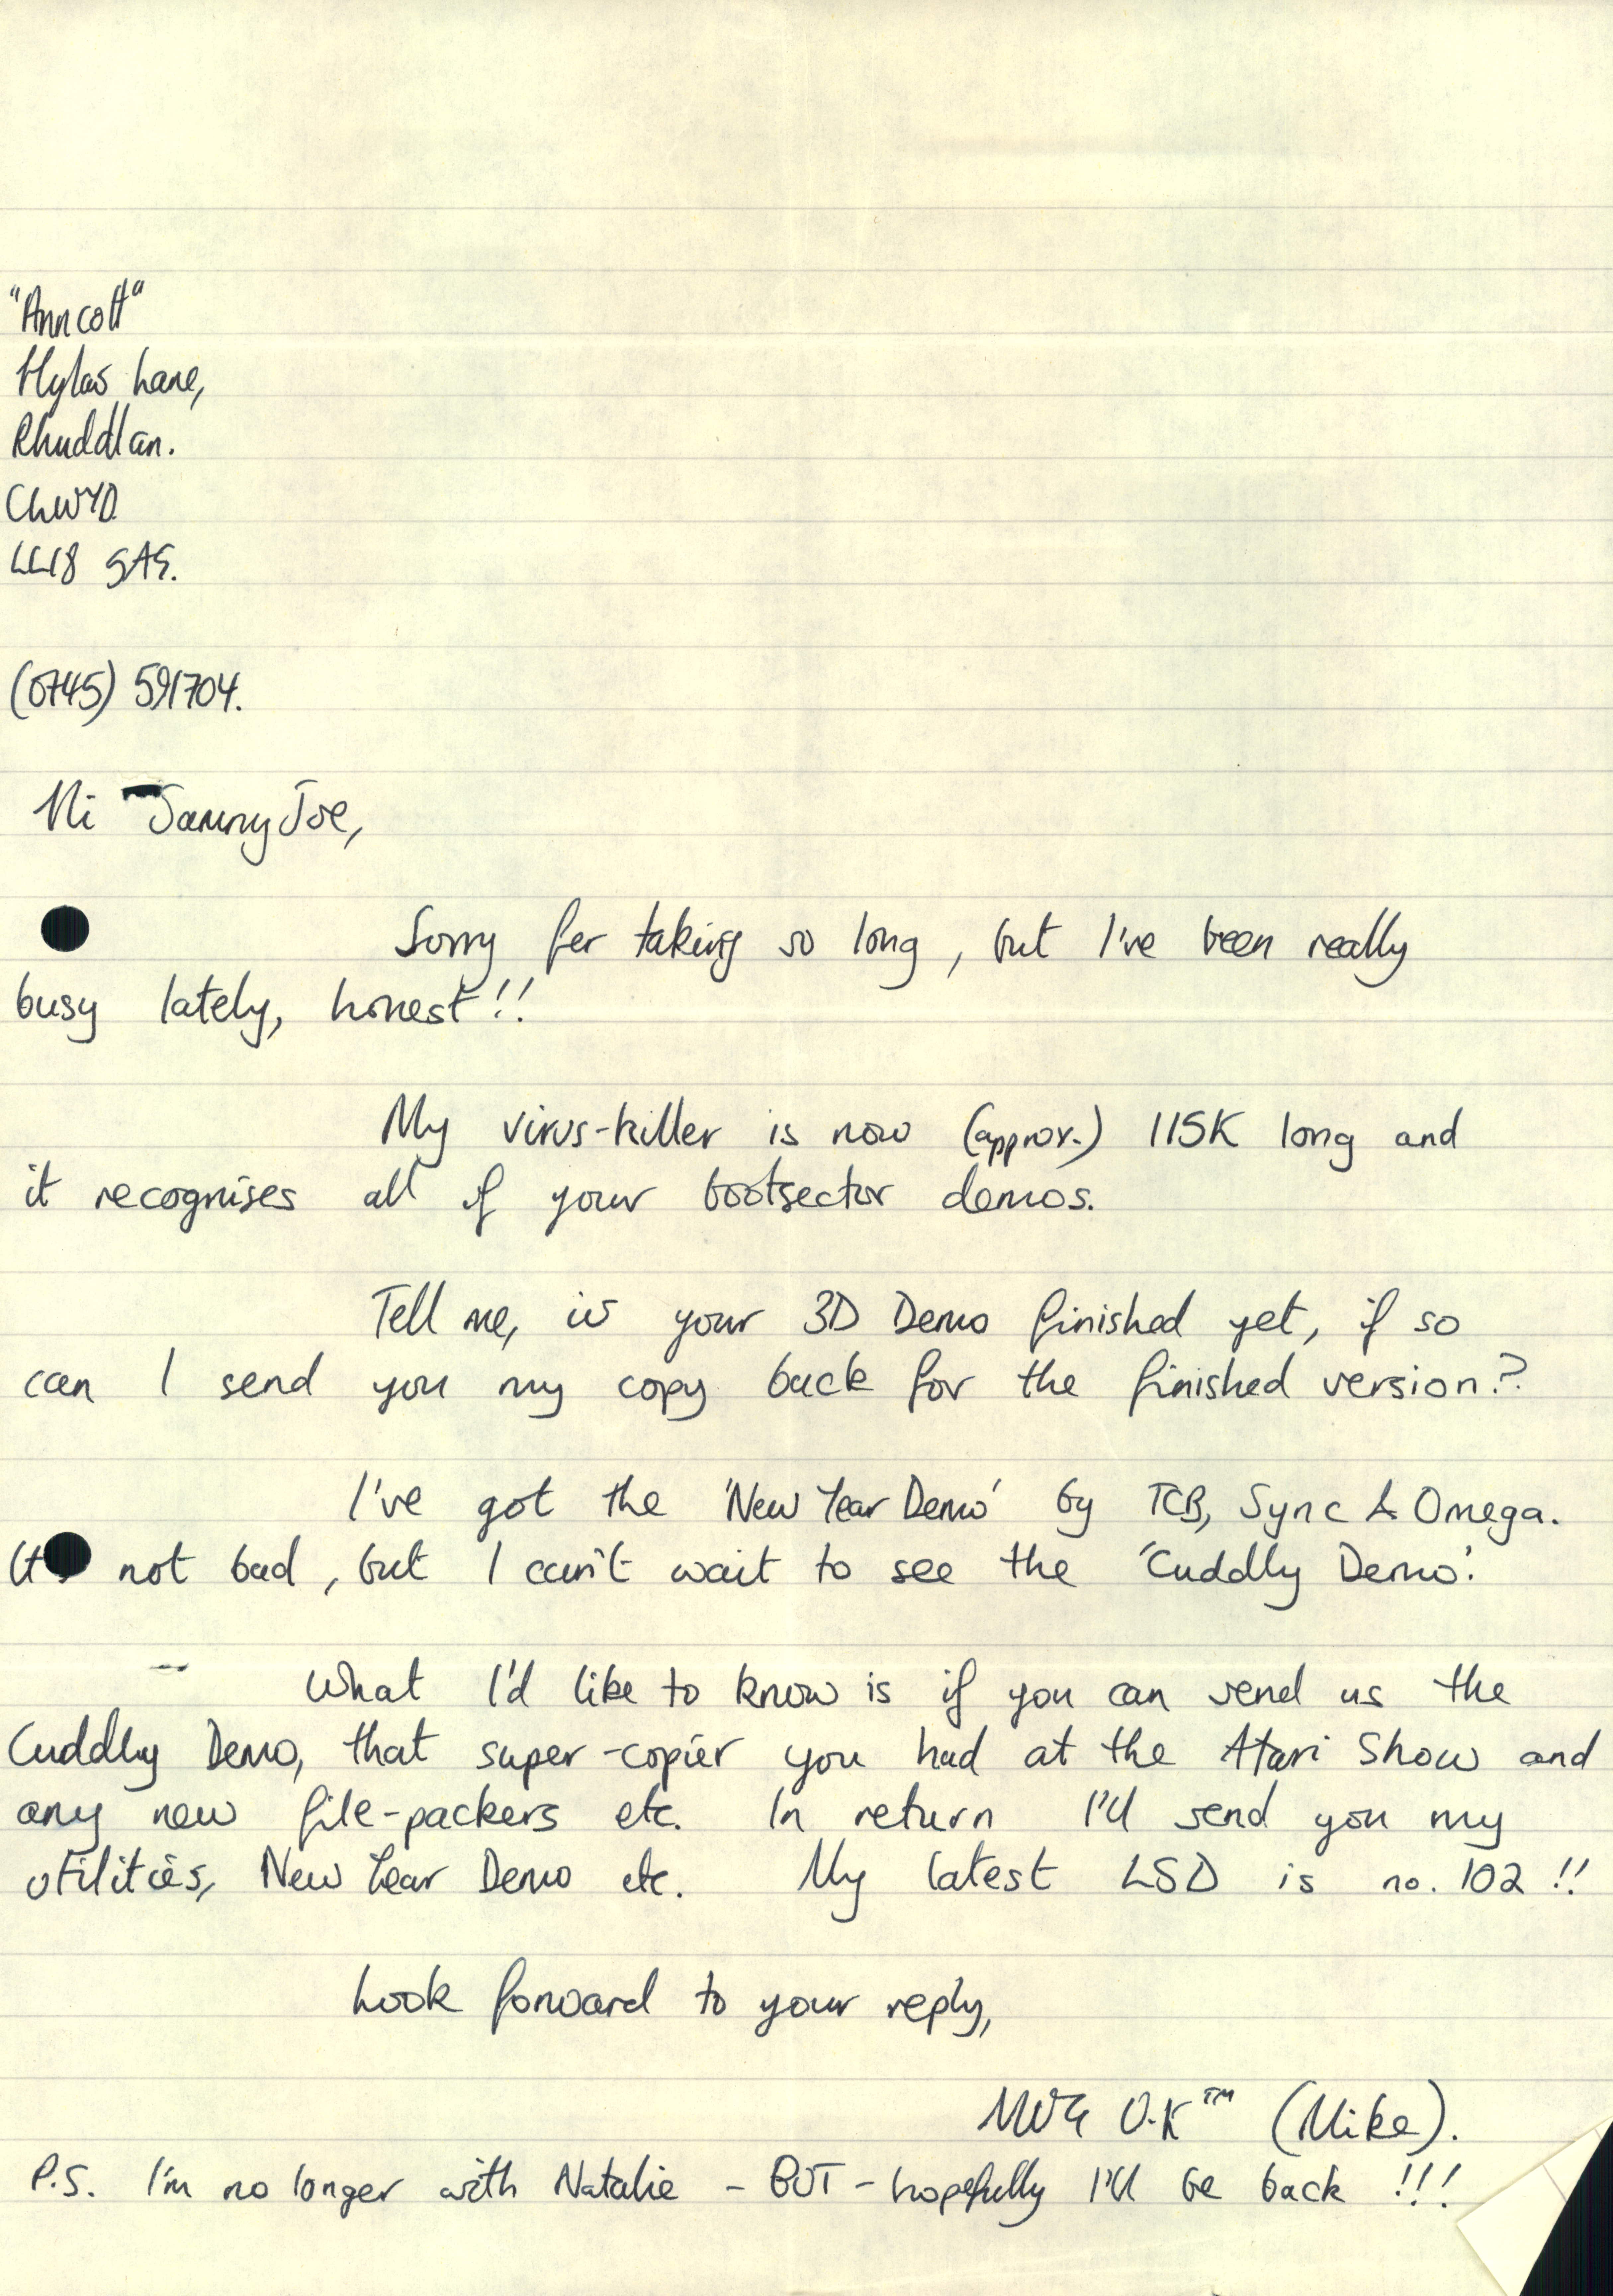 "Anncott"
Hylas Lane,
Rhuddlan.
CLWYD
LL18 5AG.
(0745) 591704.
Hi Sammy Joe,
Sorry for taking so long, but I've been really
busy lately, honest!!
My virus-killer is now (approx.) 115K long and
it recognises all of your bootsector demos.
Tell me, is your 3D Demo finished yet, if so
can I send you my copy back for the finished version?
I've got the 'New Year Demo' by TCB, Sync & Omega.
not bad, but I can't wait to see the 'Cuddly Demo'.
What I'd like to know is if you can send us the
Cuddly Demo, that super-copier you had at the Atari Show and
any new file-packers etc. In return I'll send you my
utilities, New Year Demo etc. My latest LSD is no. 102 !!
Look forward to your reply,
O.K™ (Mike).
P.S. I'm no longer with Natalie - BUT - hopefully I'll be back !!!